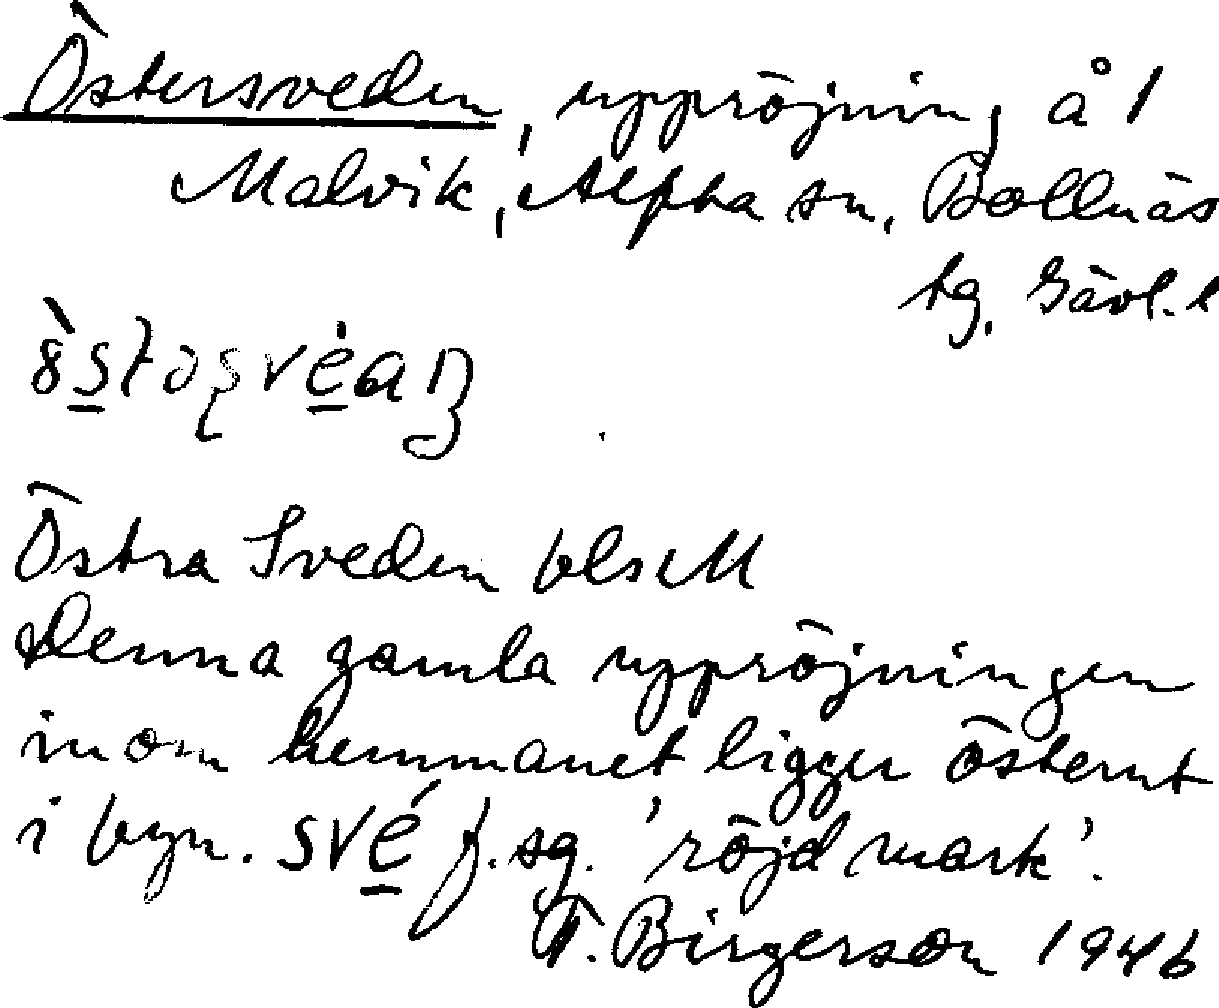 Östersveden, uppröjning å 1
Malvik, Alfta sn, Bollnäs
tg, Gävl. l
Östra Sveden blst M
Denna gamla uppröjningen
inom hemmanet ligger österut
i byn. své f. sg. 'röjd mark'.
T. Birgerson 1946